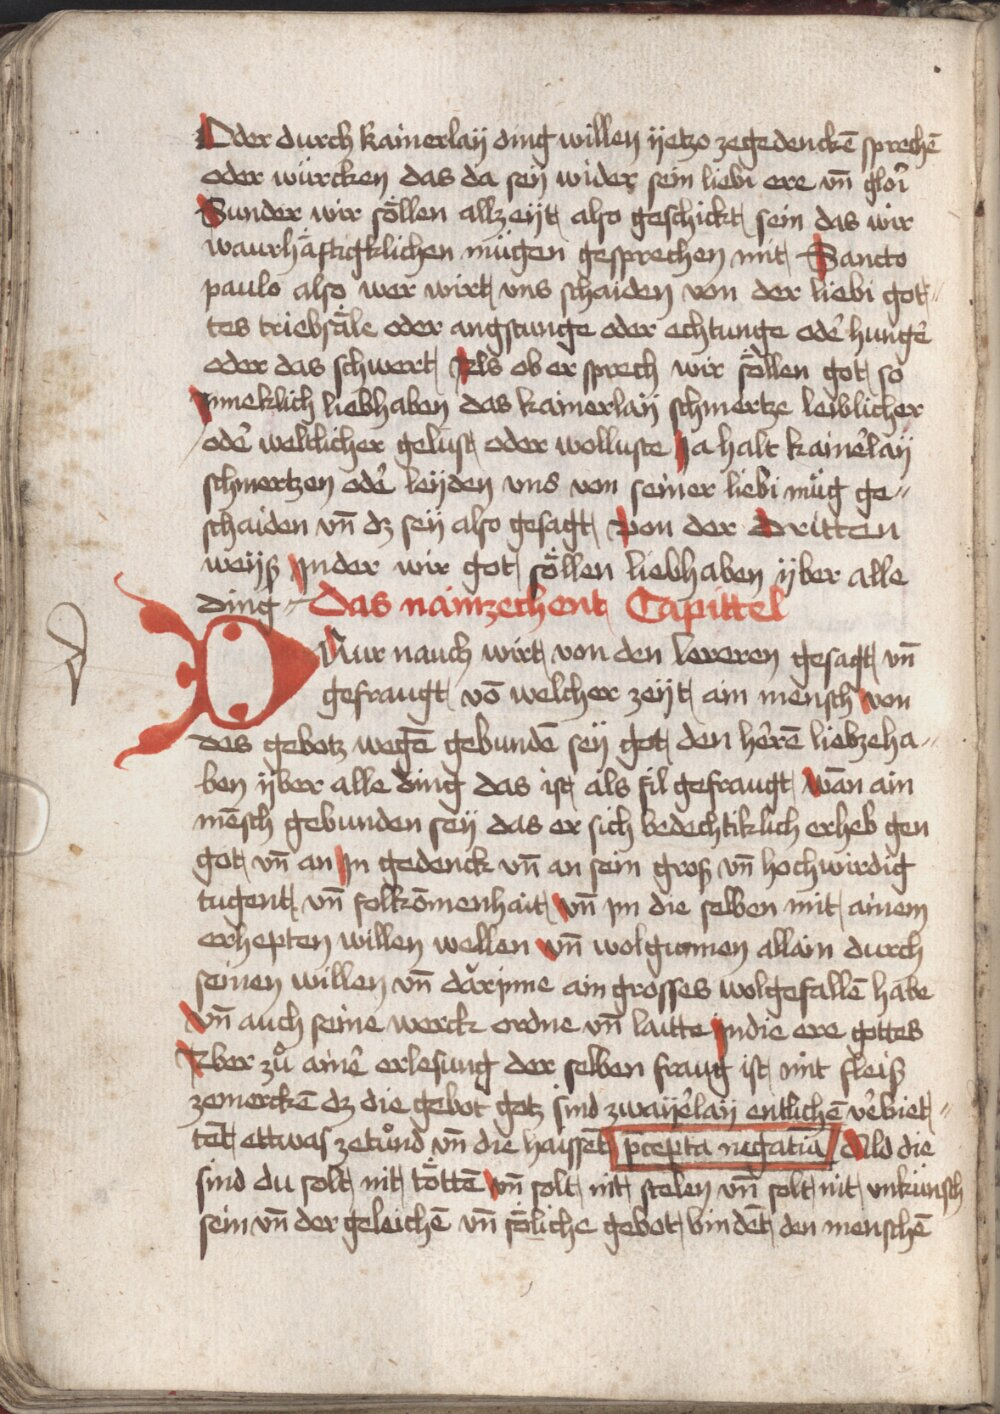 Oder durch kainerlaÿ ding willen ÿetzo zegedenckē sprechē
oder würcken das da seÿ wider sein liebi ere vn̄ glorī
Sunder wir söllen allzeÿt also geschickt sein das wir
waurhäftigklichen mügen gesprechen mit Sancto
paulo also wer wirt vns schaiden von der liebi got⸗
tes triebsäle oder angstunge oder echtunge oder̄ hunger̄
oder das schwert Als ob er sprech wir söllen got so
inneklich liebhaben das kainerlaÿ schmertze leiblicher
oder̄ weltlicher gelüst oder wolluste Ja halt kainer̄laÿ
schmertzen oder̄ leÿden vns von seiner liebi müg ge⸗
schaiden vn̄ dz seÿ also gesagt Von der dritten
weÿß In der wir got söllen liebhaben ÿber alle
ding ⸗ Das nainzechent Capittel
Dar nauch wirt von den lereren gesagt vn̄
gefraugt vō welcher zeÿt ain mensch von
des gebotz wegē gebundē seÿ got den hērē liebzeha⸗
ben ÿber alle ding das ist als fil gefraugt wān ain
mēsch gebunden seÿ das er sich bedechtiklich erheb gen
got vn̄ an In gedenck vn̄ an sein groß vn̄ hochwirdig
tugent vn̄ folkōmenhait vn̄ jm die selben mit ainem
erhepten willen wellen vn̄ wolgunnen allain durch
seinen willen vn̄ dar jnne ain grosses wolgefallē habe
Vn̄ auch seine werck ordne vn̄ laitte In die ere gottes
Aber zů ainer̄ erlesung der selben fraug ist mit fleiß
zemerckē dz die gebot gotz sind zwaÿer̄laÿ etlichē ver̄biet⸗
tēt ettwas zetůnd vn̄ die haissēt p̄cepta negatiūa Als die
sind du solt nit töttē vn̄ solt nit stelen vn̄ solt nit vnkünsch
sein vn̄ der geleichē vn̄ söliche gebot bindēt den menschē